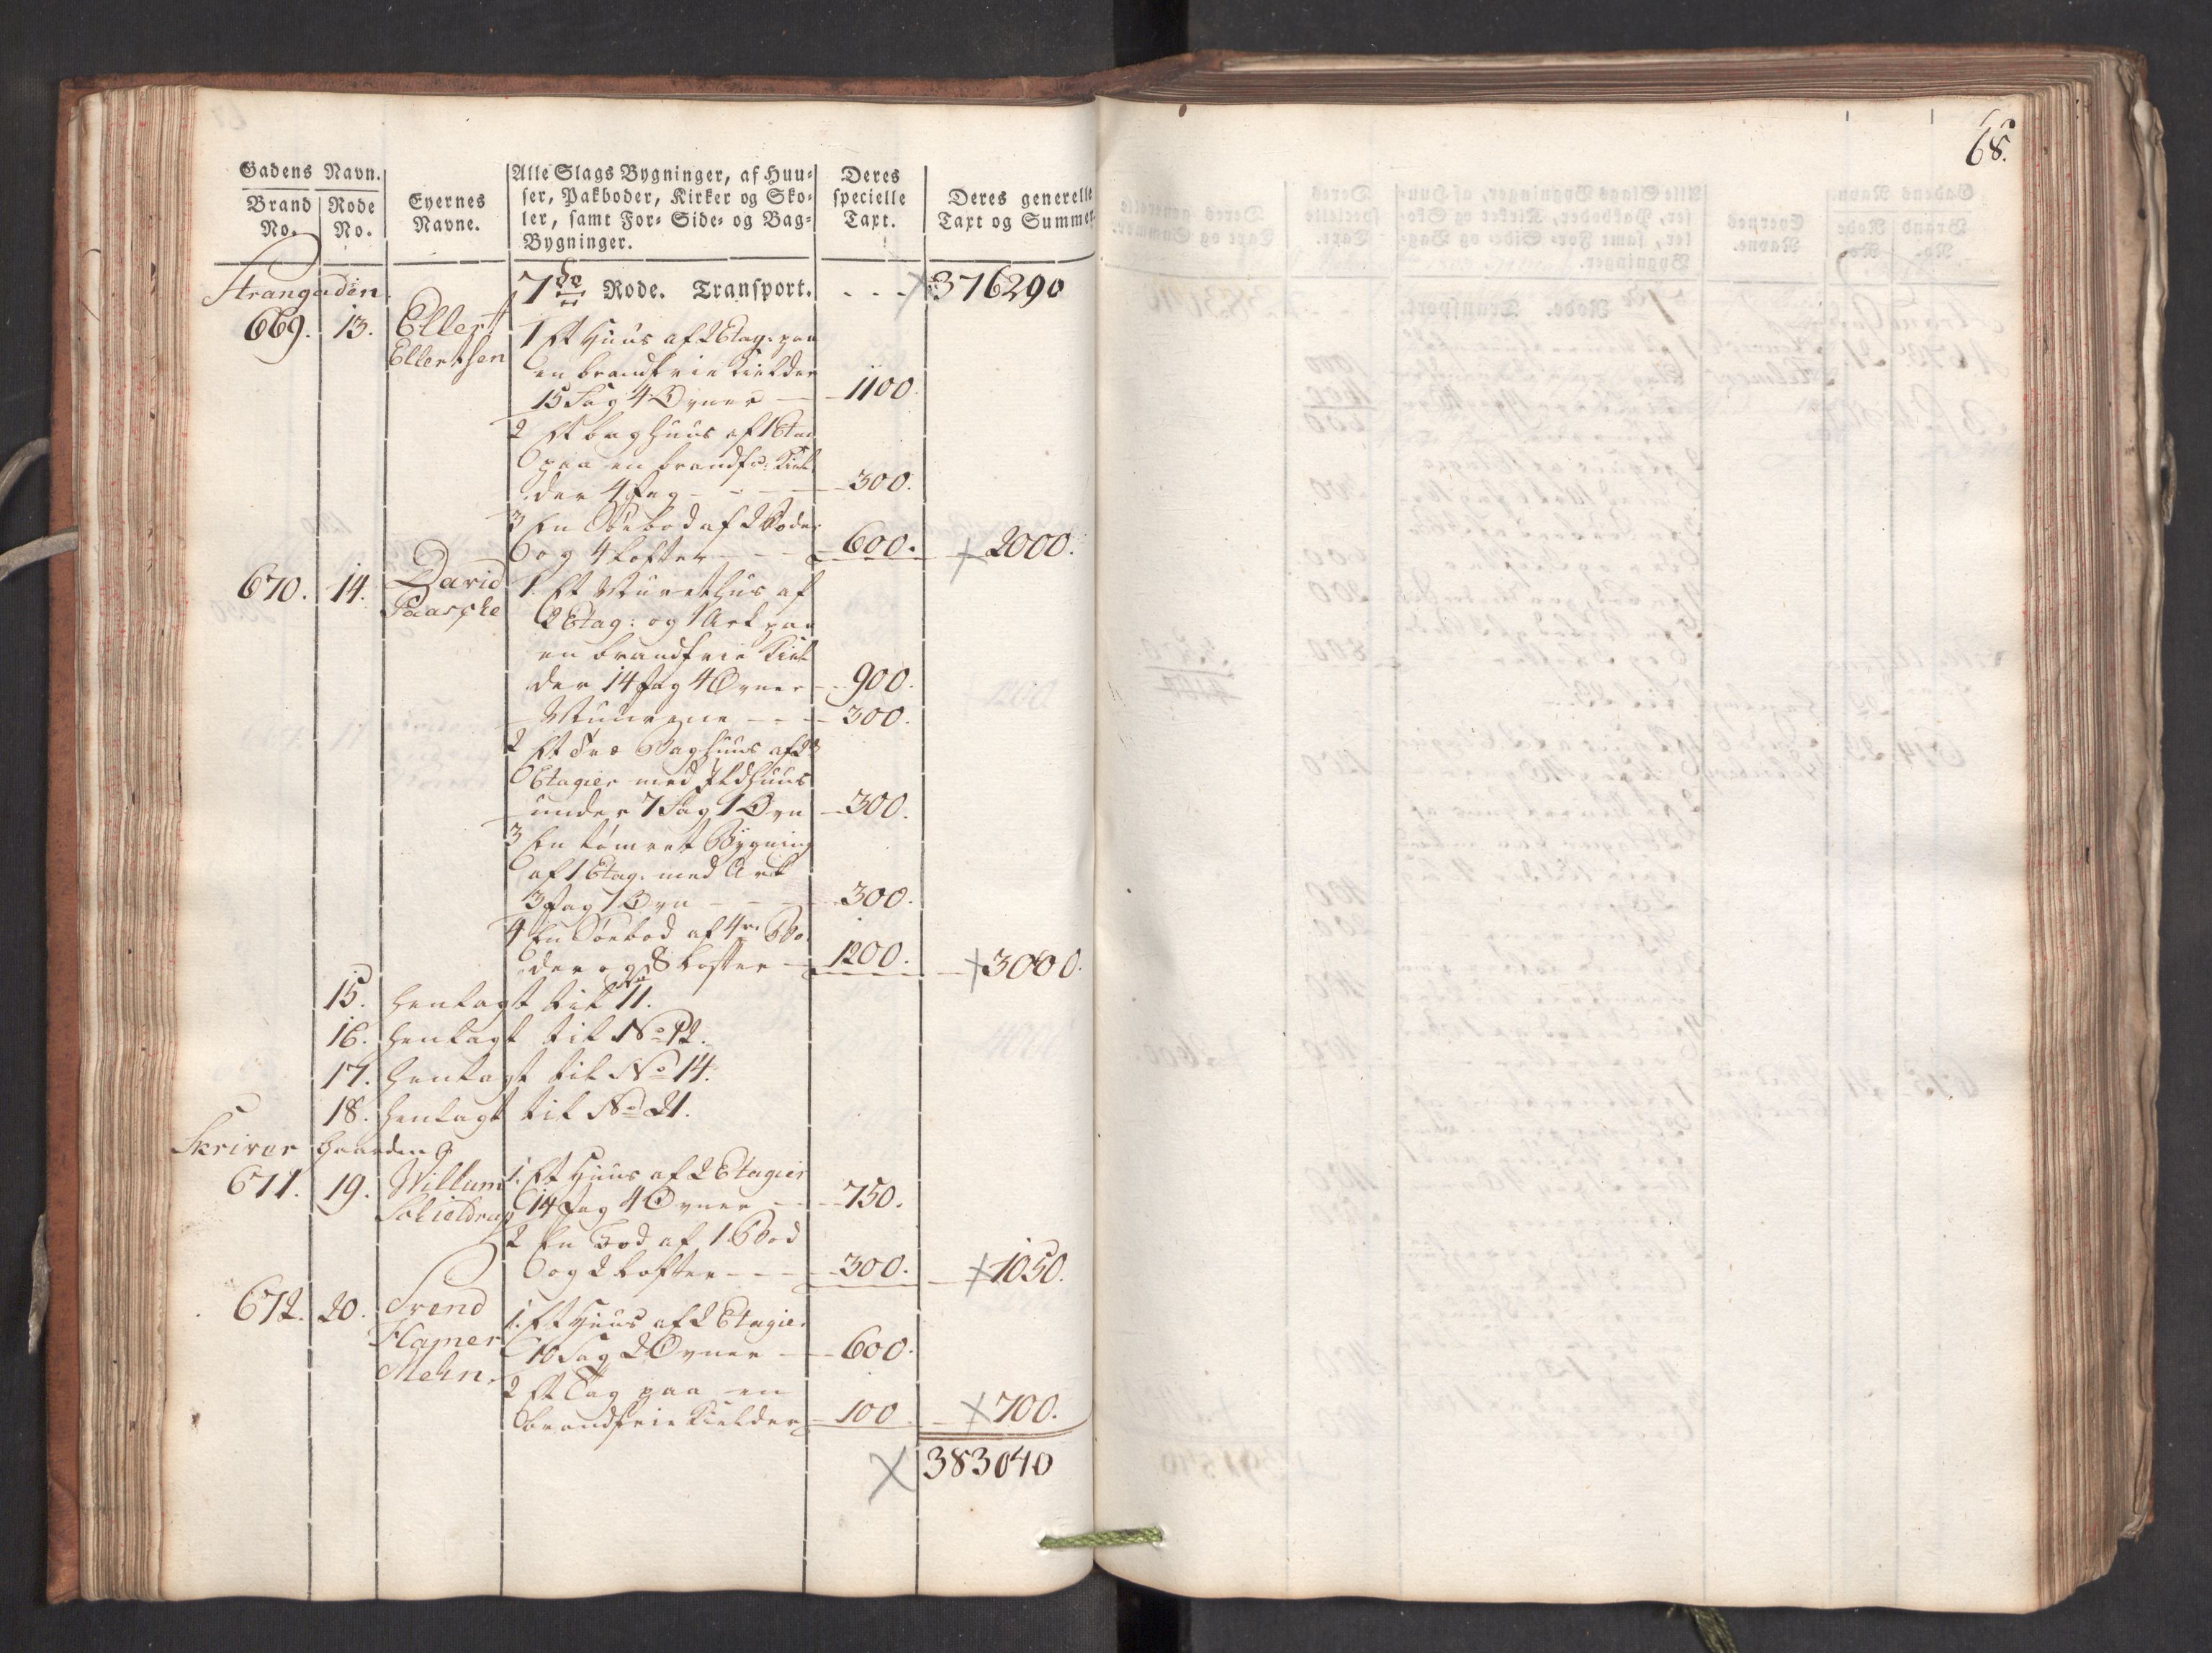 68.
Gadens Navn.
Brand No.
Rode No.
Eyernes Navne.
Alle Slags Bygninger, af Huu-
ser, Pakboder, Kirker og Sko-
ler, samt For- Side- og Bag-
Bygninger.
Deres specielle Taxt.
Deres generelle Taxt og Summer.
Strangaden. 7de Rode. Transport. - - - 376290
669. 13. Ellert 1 Et Huus af 2 Etag. paa
Ellertsen en brandfrie Kielder
15 Fag 4 Ovner - 1100.
2 Et baghuus af 1 Etag
paa en brandfr: Kiel
der 4 Fag - - - 300.
3 En Søebod af 2 Boder
og 4 Lofter - - - 600. 2000.
670. 14. David 1. Et Muuret Hus af
Paaske 2 Etag: og 1 Ark paa
en brandfrie Kiel
der 14 Fag 4 Ovner - 900.
Muurene - - - 300.
2 Et Træ Baghuus af 2
Etagier med Ildhuus
under 7 Fag 1 Ovn 300.
3 En tømret Bygning
af 1 Etag. med Ark
3 Fag 1 Ovn - - - 300.
4 En Søebod af 4re Bo
der og 8 Lofter - 1200. 3000.
15. henlagt til No 11.
16. henlagt til No 12.
17. henlagt til No 14.
18. henlagt til No 21.
Skriver Gaarden
671. 19. Willum 1. Et Huus af 2 Etagier
Schieldrup 14 Fag 4 Ovner - - 750.
2 En Bod af 1 Bod
og 2 Lofter - - - 300. 1050.
672. 20. Svend 1. Et Huus af 2 Etagie.
Hamer 10 Fag 2 Ovner - 600.
Mehn. 2 Et Tag paa en
brandfrie Kielder 100 700.
383040